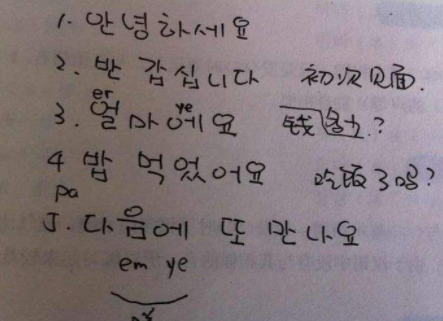 1. 안녕하세요
2. 반갑십니다 初次见面.
er ye
3. 얼마에요 钱 ?
4 밥 먹었어요 吃饭了吗?
pa
5. 다음에 또 만나요
em ye